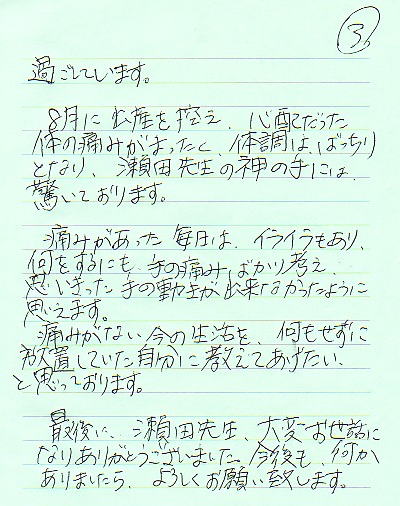 3.
過ごしています。
8月に出産を控え、心配だった
体の痛みがまったく、体調は、ばっちり
となり、瀬田先生の神の手には、
驚いております。
痛みがあった毎日は、イライラもあり、
何をするにも、手の痛みばかり考え、
思いきった手の動きが出来なかったように
思えます。
痛みがない今の生活を、何もせずに
放置していた自分に教えてあげたい、
と思っております。
最後に、瀬田先生、大変お世話に
なりありがとうございました。今後も、何か
ありましたら、よろしくお願い致します。